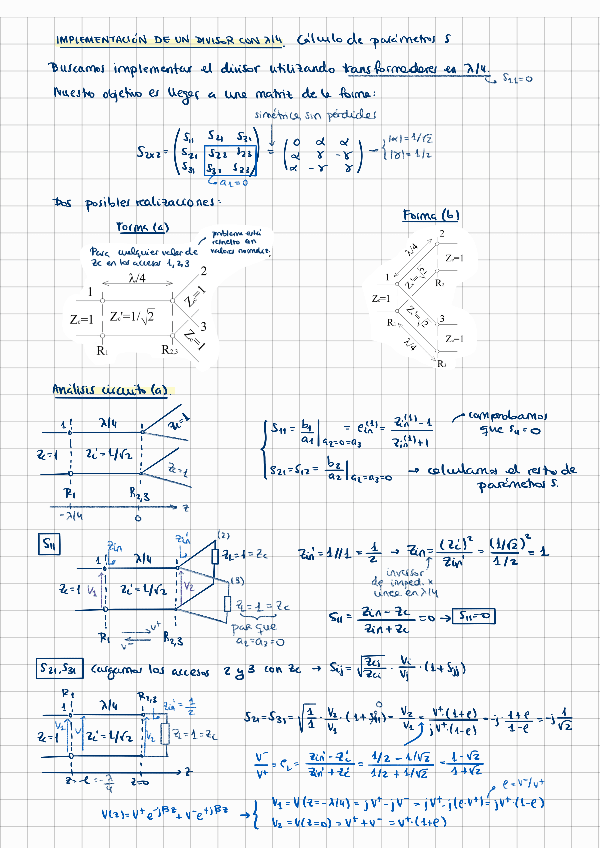 IMPLEMENTACIÓN DE UN DIVISOR CON λ/4. Cálculo de parámetros S
Buscamos implementar el divisor utilizando transformadores en λ/4.
↳ S₁₁=0
Nuestro objetivo es llegar a una matriz de la forma:
simétrica, sin pérdidas
S₂ₓ₂ = (S₁₁ S₂₁ S₂₁; S₂₁ S₂₂ S₂₃; S₃₁ S₃₁ S₂₃) = (0 α α; α γ -γ; α -γ γ) → {|α|=1/√2 |γ|=1/2
↳ a₁=0
Dos posibles realizaciones:
Forma (a)
Forma (b)
problema está resuelto con valores normaliz.
Para cualquier valor de
Zc en los accesos 1,2,3
λ/4
1
2
3
Zc=1
Zc'=1/√2
Zc=1
Zc=1
R₁
R₂,₃
2
λ/4
Zc=1
Zc'=√2
R₂
1
Zc=1
R₁
Zc'=√2
3
λ/4
Zc=1
R₃
Análisis circuito (a).
1
λ/4
Zc=1
Zc=1
Zc'=1/√2
Zc=1
R₁
R₂,₃
z
-λ/4
0
S₁₁ = b₁/a₁ |a₂=0=a₃ = ρin⁽¹⁾ = (Zin⁽¹⁾-1)/(Zin⁽¹⁾+1)
comprobamos
que S₁₁=0
S₂₁=S₁₂ = b₂/a₂ |a₁=a₃=0 → calculamos el resto de
parámetros S.
S₁₁
Zin
Zin'
(2)
1
λ/4
ZL=1=Zc
Zc=1
V₁
Zc'=1/√2
V₂
(3)
ZL=1=Zc
R₁
V⁺
V⁻
R₂,₃
para que
a₂=a₃=0
Zin'=1//1 = 1/2 → Zin = (Zc')²/Zin' = (1/√2)²/(1/2) = 1
inversor
de imped. x
línea en λ/4
S₁₁ = (Zin-Zc)/(Zin+Zc) = 0 → S₁₁=0
S₂₁,S₃₁ Cargamos los accesos 2 y 3 con Zc → Sij = √(Zcj/Zci) · Vi/Vj · (1+Sjj)
R₁
R₂,₃
1
λ/4
Zin'=1/2
Zc=1
V₁
V
Zc'=1/√2
V₂
ZL=1=Zc
z=-ℓ=-λ/4
z=0
z
S₂₁=S₃₁=√(1/1) · V₂/V₁ · (1+S₁₁) = V₂/V₁ = V⁺(1+ρ)/(jV⁺(1-ρ)) = -j · (1+ρ)/(1-ρ) = -j 1/√2
V⁻/V⁺ = ρL = (Zin'-Zc')/(Zin'+Zc') = (1/2-1/√2)/(1/2+1/√2) = (1-√2)/(1+√2)
ρ=V⁻/V⁺
V(z)=V⁺e^-jβz+V⁻e^+jβz → { V₁=V(z=-λ/4)=jV⁺-jV⁻=jV⁺-j(ρ·V⁺)=jV⁺·(1-ρ)
V₂=V(z=0)=V⁺+V⁻=V⁺·(1+ρ)